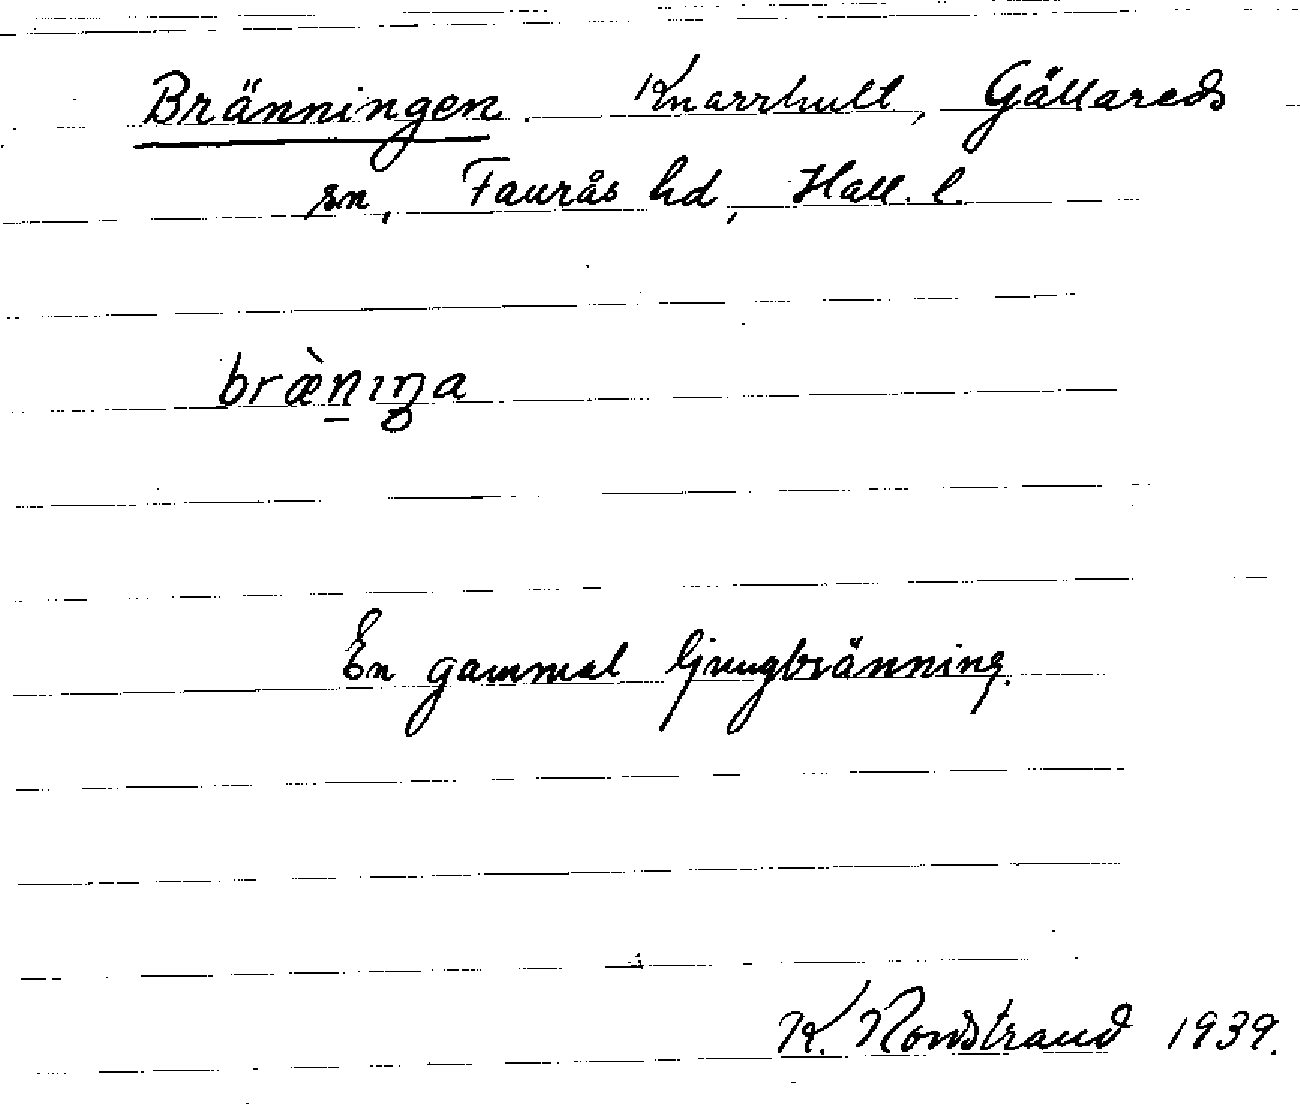 Bränningen. Knarrhult, Gällareds
sn, Faurås hd, Hall. l.
bræ̀n̲ıŋa
En gammal ljungbränning.
K. Nordstrand 1939.